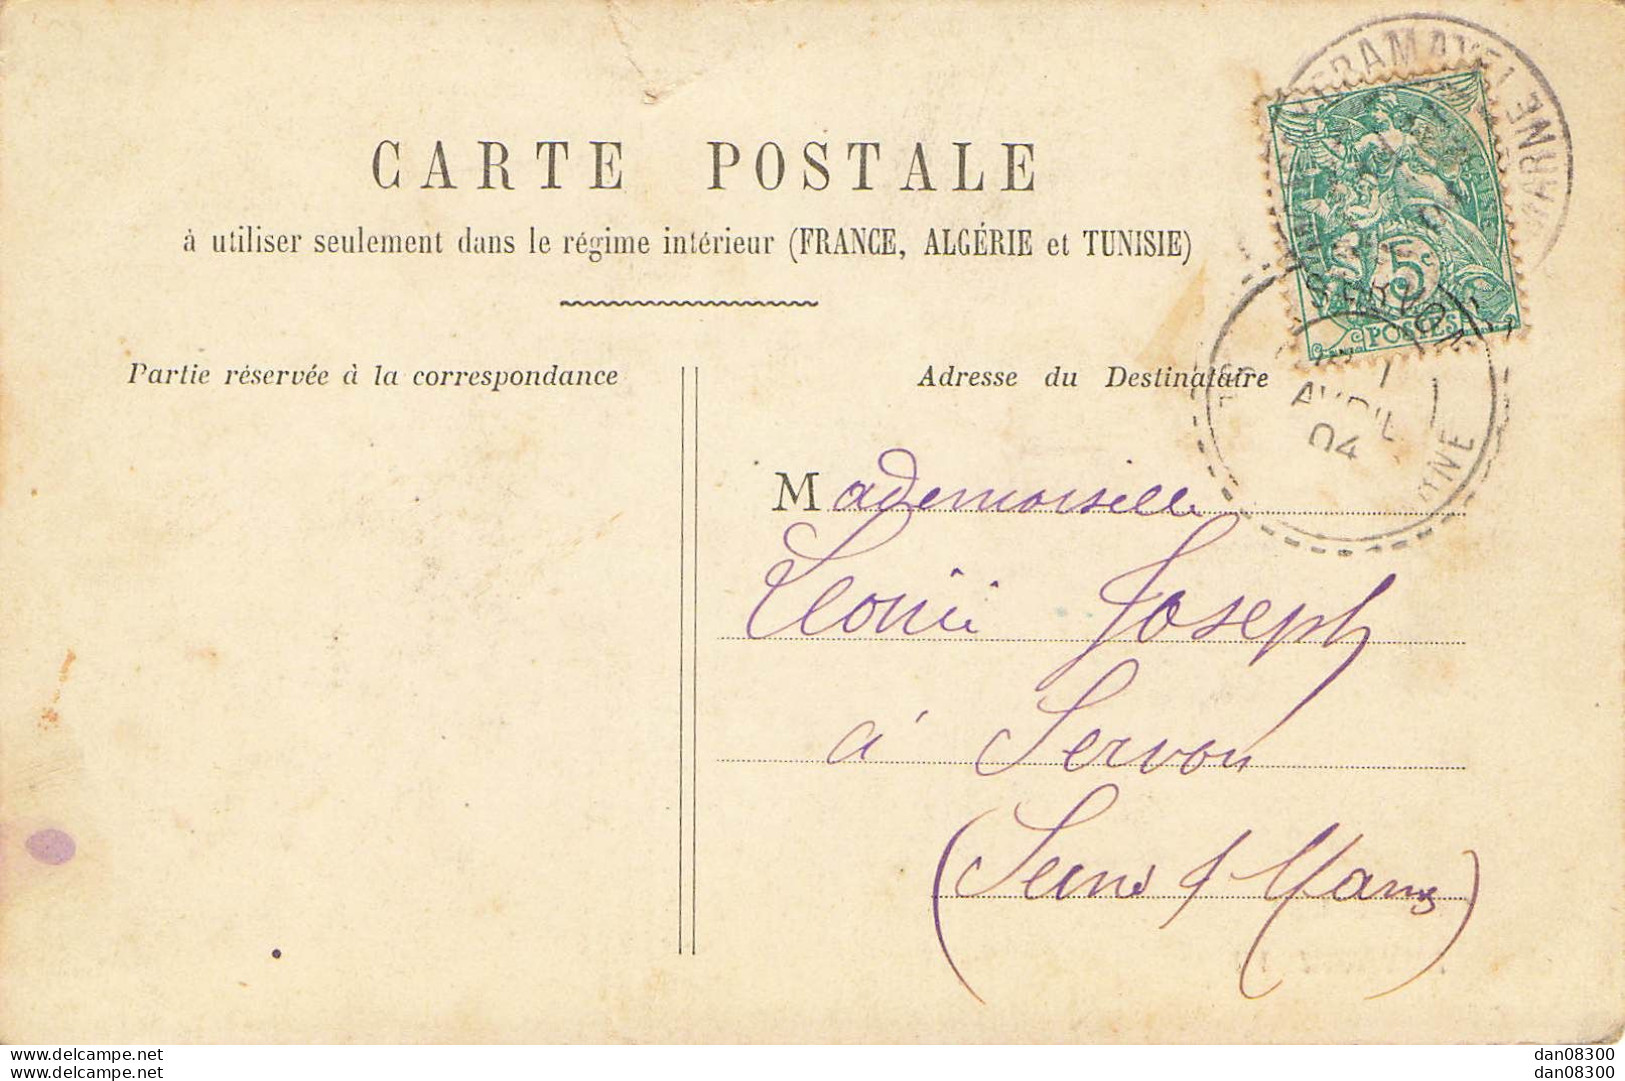 CARTE POSTALE
à utiliser seulement dans le régime intérieur (FRANCE, ALGÉRIE et TUNISIE)
Partie réservée à la correspondance
Adresse du Destinataire
5c
POSTES
SERVON
AVRIL
04
MARNE
Mademoiselle
Léonie Joseph
à Servon
(Seine & Marne)
www.delcampe.net
www.delcampe.net
dan08300
dan08300